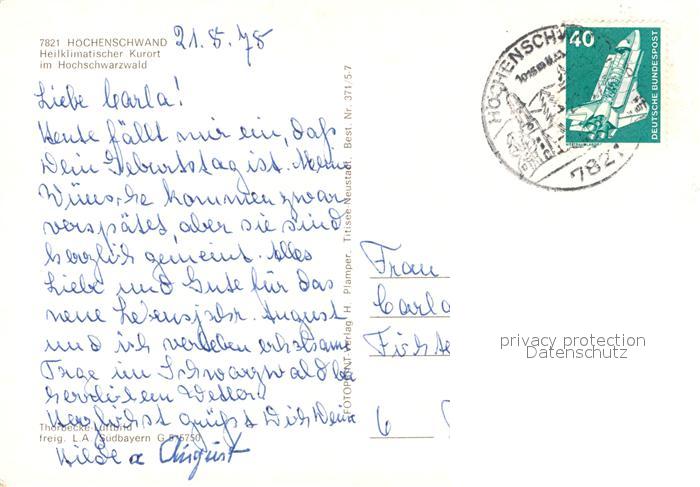 7821 HÖCHENSCHWAND
Heilklimatischer Kurort
im Hochschwarzwald
21.8.78
Liebe Carla!
Heute fällt mir ein, daß
Dein Geburtstag ist. Meine
Wünsche kommen zwar
verspätet, aber sie sind
herzlich gemeint. Alles
Liebe und Gute für das
neue Lebensjahr. August
und ich verleben erholsame
Tage im Schwarzwald bei
herrlichem Wetter.
Herzlichst grüßt Dich Deine
Hilde u August
Thorbecke-Luftbild
freig. L.A. Südbayern G 5/5750
FOTOPRINT-Verlag H. Plamper, Titisee-Neustadt, Best. Nr. 371/5-7
HÖCHENSCHW
7821
40
DEUTSCHE BUNDESPOST
Frau
Carla
6
privacy protection
Datenschutz